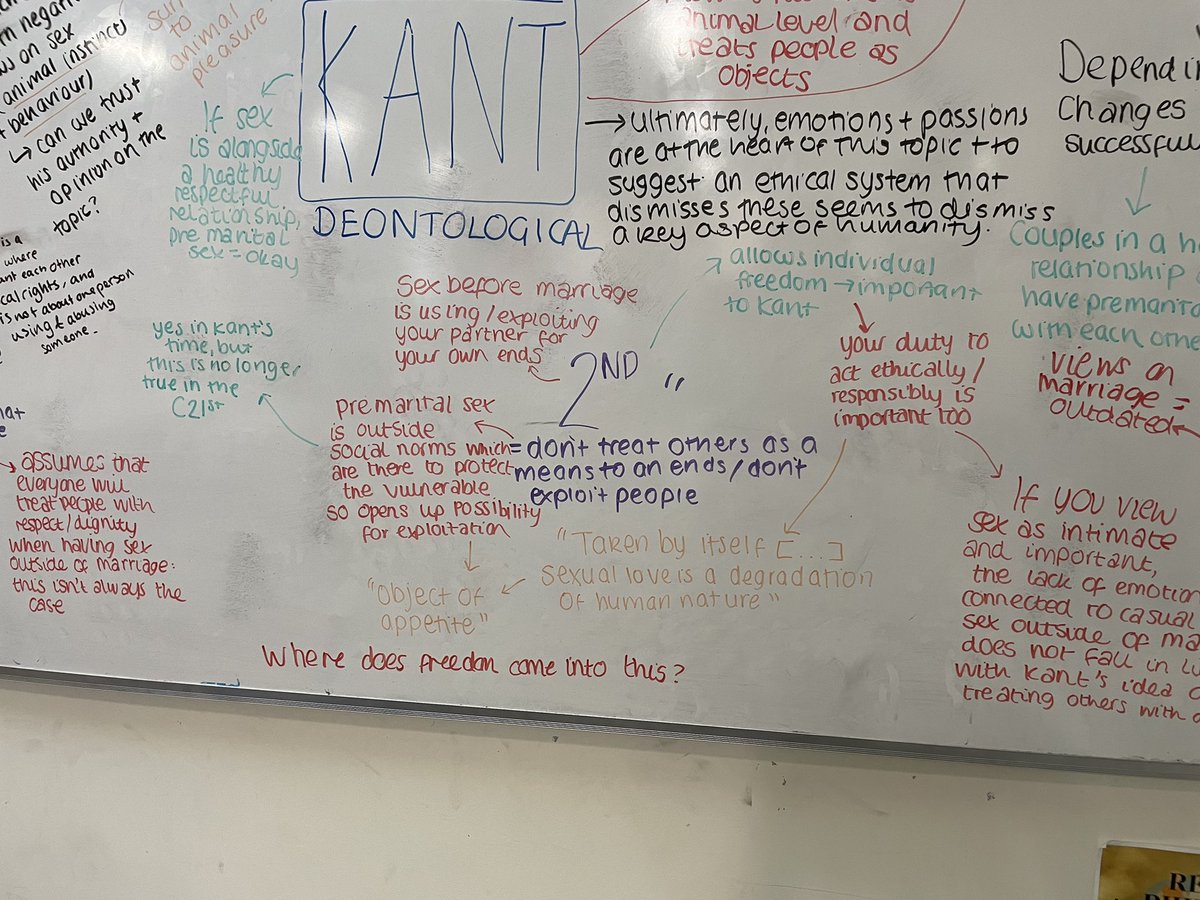 negati
ws on sex
(animal instinct
+ behaviour)
↳ can we trust
his authority +
opinion on the
topic?
is a
where
ant each other
cal rights, and
is not about one person
using & abusing
someone.
to
animal
pleasure
If sex
is alongside
a healthy
respectful
relationship,
premarital
sex = okay
KANT
DEONTOLOGICAL
animal level and
treats people as
objects
→ ultimately, emotions + passions
are at the heart of this topic + to
suggest an ethical system that
dismisses these seems to dismiss
a key aspect of humanity.
Dependin
Changes
successful
Couples in a he
relationship
have premarita
with each othe
views on
marriage =
outdated
allows individual
freedom → important
to Kant
your duty to
act ethically/
responsibly is
important too
Sex before marriage
is using/exploiting
your partner for
your own ends
2ND "
= don't treat others as a
means to an ends/don't
exploit people
premarital sex
is outside
social norms which
are there to protect
the vulnerable
so opens up possibility
for exploitation
yes in Kant's
time, but
this is no longer
true in the
C21st
→ assumes that
everyone will
treat people with
respect/dignity
when having sex
outside of marriage:
this isn't always the
case
"Taken by itself [...]
sexual love is a degradation
of human nature"
"object of
appetite"
Where does freedom come into this?
If you view
sex as intimate
and important,
the lack of emotion
connected to casual
sex outside of ma
does not fall in li
with Kant's idea o
treating others with d
RE